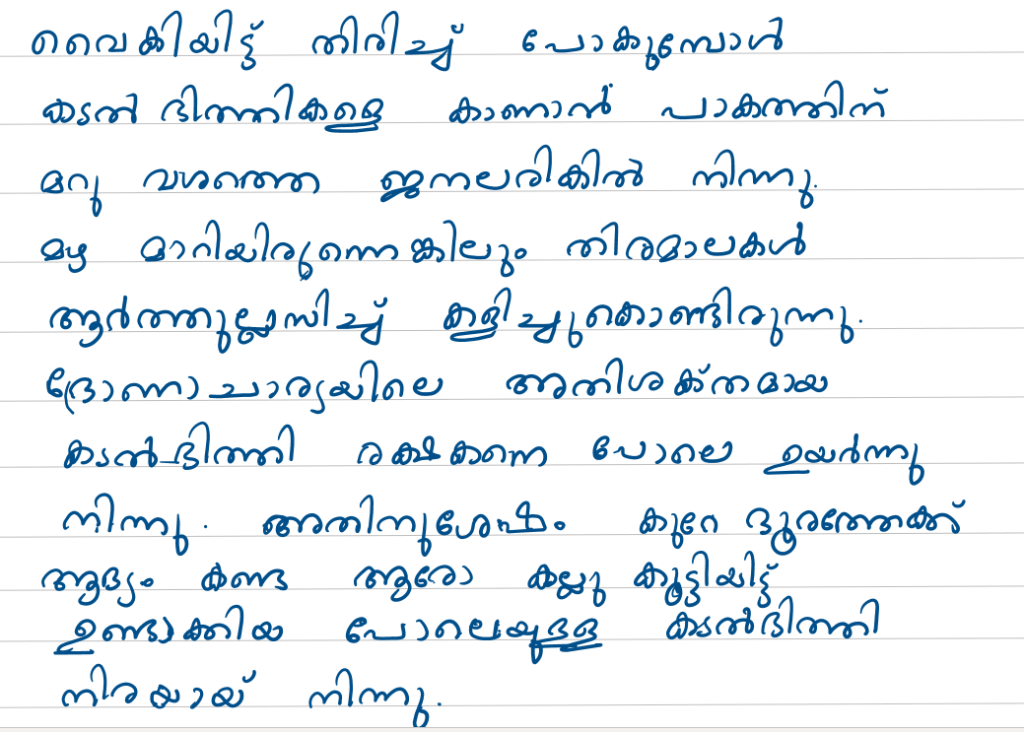 വൈകിയിട്ട് തിരിച്ച് പോകുമ്പോൾ
കടൽ ഭിത്തികളെ കാണാൻ പാകത്തിന്
മറു വശത്തെ ജനലരികിൽ നിന്നു.
മഴ മാറിയിരുന്നെങ്കിലും തിരമാലകൾ
ആർത്തുല്ലസിച്ച് കളിച്ചുകൊണ്ടിരുന്നു.
ദ്രോണാചാര്യയിലെ അതിശക്തമായ
കടൽഭിത്തി രക്ഷകനെ പോലെ ഉയർന്നു
നിന്നു. അതിനുശേഷം കുറേ ദൂരത്തേക്ക്
ആദ്യം കണ്ട ആരോ കല്ലു കൂട്ടിയിട്ട്
ഉണ്ടാക്കിയ പോലെയുള്ള കടൽഭിത്തി
നിരയായ് നിന്നു.